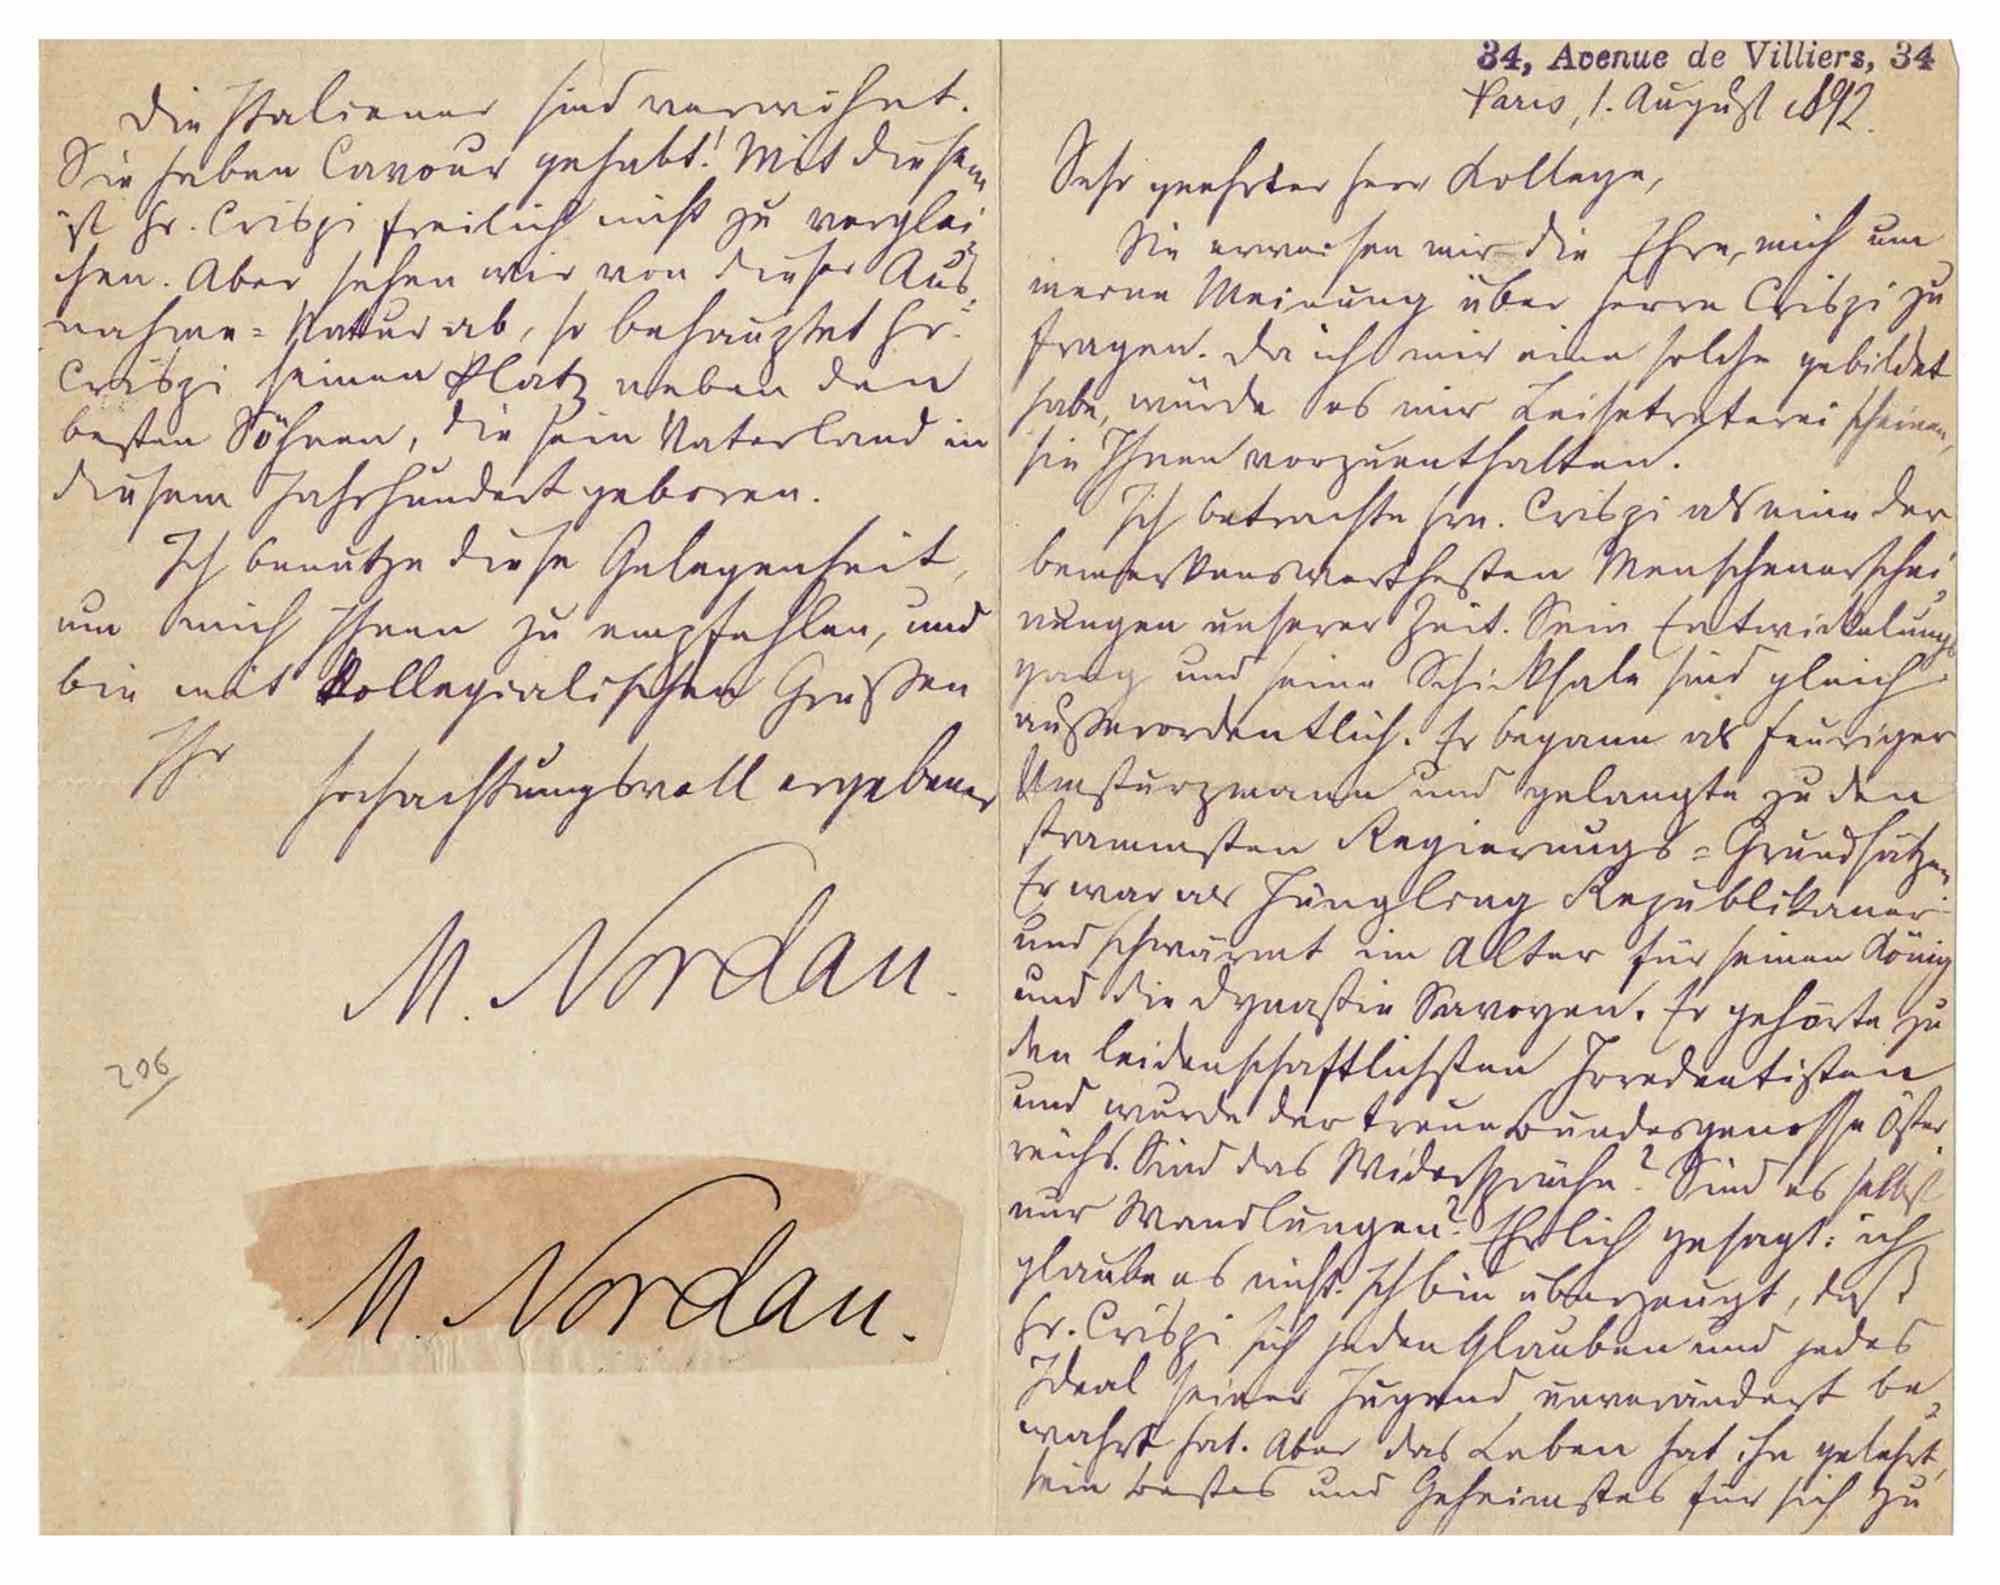 34, Avenue de Villiers, 34
Paris, 1. August 1892.
Sehr geehrter Herr Kollege,
Sie erweisen mir die Ehre, mich um
meine Meinung über Herrn Crispi zu
fragen. Da ich mir eine solche gebildet
habe, würde es mir Leisetreterei scheinen,
sie Ihnen vorzuenthalten.
Ich betrachte Hrn. Crispi als eine der
bemerkenswerthesten Menschenerschei-
nungen unserer Zeit. Sein Entwickelungs-
gang und seine Schicksale sind gleich
außerordentlich. Er begann als feuriger
Umsturzmann und gelangte zu den
strammsten Regierungs-Grundsätzen.
Er war als Jüngling Republikaner
und schwärmt im Alter für seinen König
und die Dynastie Savoyen. Er gehörte zu
den leidenschaftlichsten Irredentisten
und wurde der treue Bundesgenosse Öster-
reichs. Sind das Widersprüche? Sind es selbst
nur Wandlungen? Ehrlich gesagt: ich
glaube es nicht. Ich bin überzeugt, daß
Hr. Crispi sich jeden Glauben und jedes
Ideal seiner Jugend unverändert be-
wahrt hat. Aber das Leben hat ihn gelehrt,
sein Bestes und Geheimstes für sich zu
Die Italiener sind verwöhnt.
Sie haben Cavour gehabt! Mit diesem
ist Hr. Crispi freilich nicht zu verglei-
chen. Aber sehen wir von dieser Aus-
nahme-Natur ab, so behauptet Hr.
Crispi seinen Platz neben den
besten Söhnen, die sein Vaterland in
diesem Jahrhundert geboren.
Ich benutze diese Gelegenheit,
um mich Ihnen zu empfehlen, und
bin mit kollegialischen Grüßen
Ihr hochachtungsvoll ergebener
M. Nordau.
206
M. Nordau.